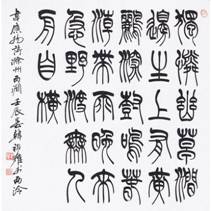 獨憐幽草澗
邊生上有黃
鸝深樹鳴春
潮帶雨晚來
急野渡無人
舟自橫
韋應物詩滁州西澗 壬辰春 於西泠